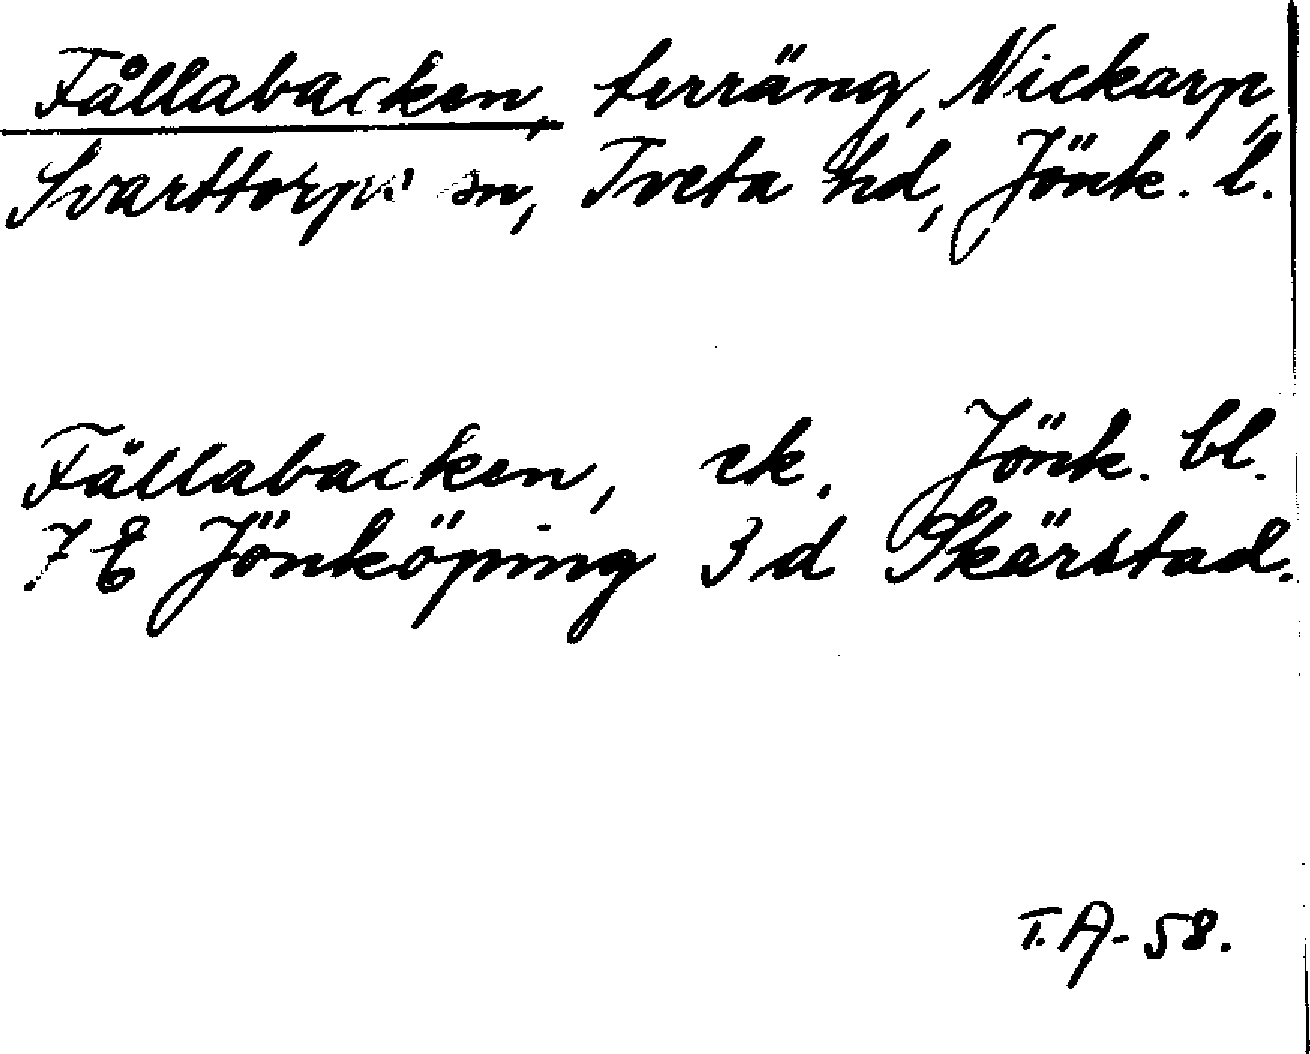 Fållabacken, terräng, Nickarp,
Svarttorps sn, Tveta hd, Jönk. l.
Fållabacken, ek. Jönk. bl.
7 E Jönköping 3 d Skärstad.
T.A-58.